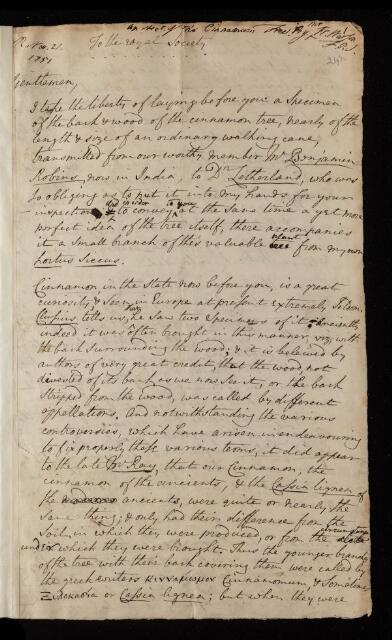 An Acct. of the Cinnamon Tree. By Mr. W. Watson F.R.S.
R. Nov. 21. To the royal Society
1751
Gentlemen,
I take the liberty of laying before you a Specimen
of the bark & wood of the cinnamon tree, nearly of the
length & size of an ordinary walking cane,
transmitted from our worthy member Mr. Benjamin
Robins, now in India, to Dr. Letherland, who was
so obliging as to put it into my hands for your
inspection. And in order to convey to you at the same time a yet more
perfect idea of the tree itself, there accompanies
it a small branch of this valuable plant from my own
hortus siccus.
Cinnamon in the State now before you, is a great
curiosity & seen in Europe at present extremely seldom.
Clusius tells us, he saw two specimens of it
indeed it was often brought in this manner, viz; with
the bark surrounding the wood; & it is believed by
authors of very great credit, that the wood, not
divested of its bark, as we now see it, or the bark
stripped from the wood, was called by different
appellations. And notwithstanding the various
controversies, which have arisen in endeavouring
to fix properly these various terms, it did appear
to the late Mr. Ray, that our Cinnamon, the
cinnamon of the ancients, & the Cassia lignea of
the ancients, were quite or nearly the
same thing; & only had their difference from the
soil, in which they were produced, or from the
under which they were brought. Thus the younger branches
of the tree with their bark covering them were called by
the greek writers Κινναμωμον Cinnamomum & sometimes
or Cassia lignea; but when they were